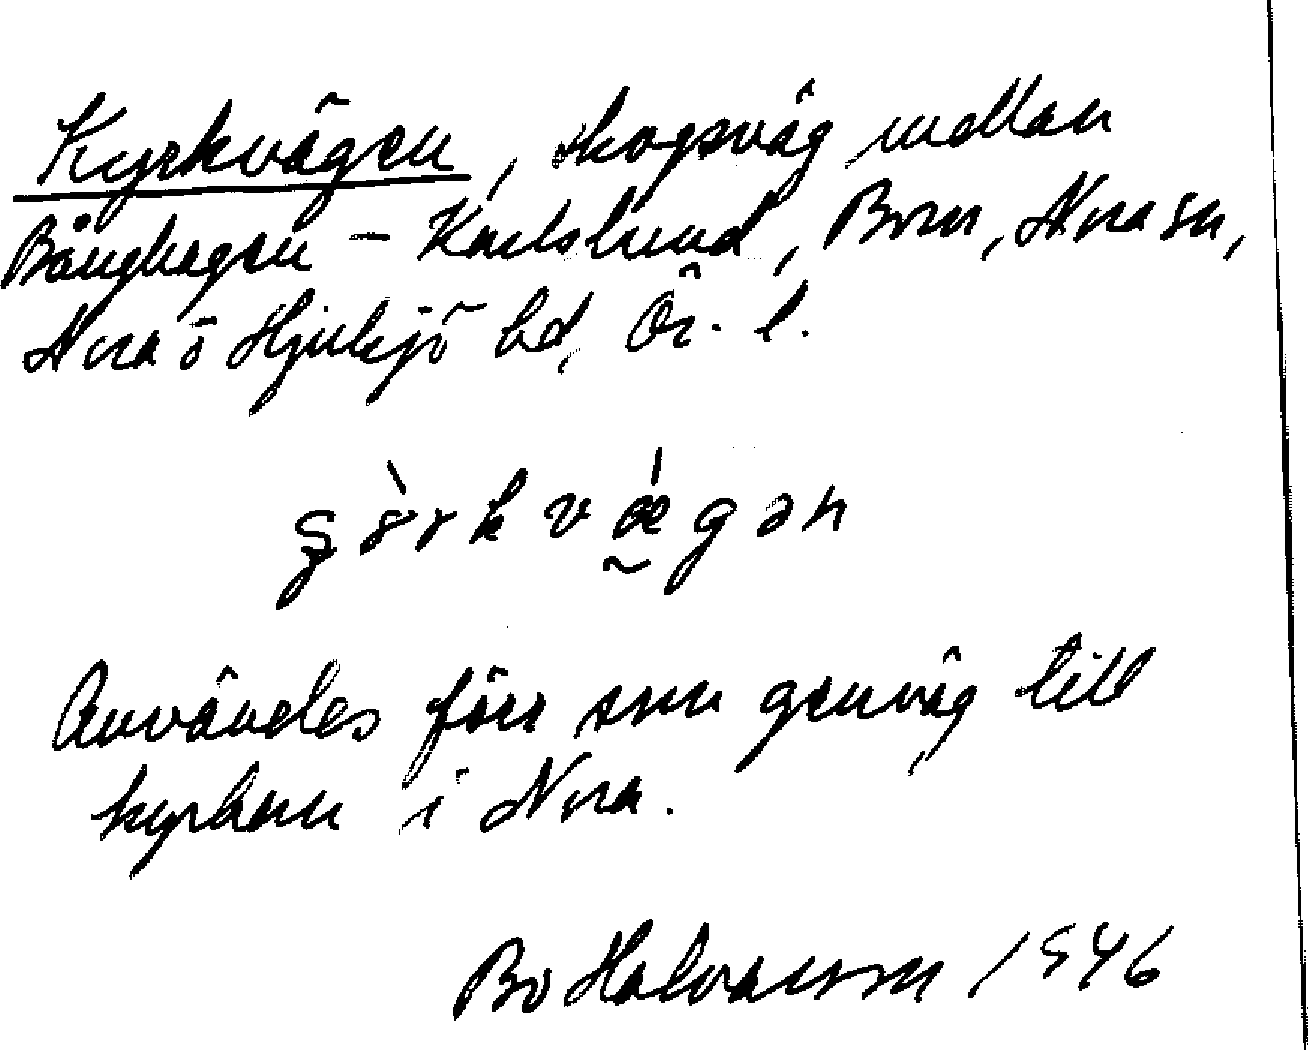 Kyrkvägen, skogsväg mellan
Bånghagen – Karlslund, Born, Nora sn,
Nora o Hjulsjö hd, Ör. l.
Användes förr som genväg till
kyrkan i Nora.
Bo Halvarsson 1946